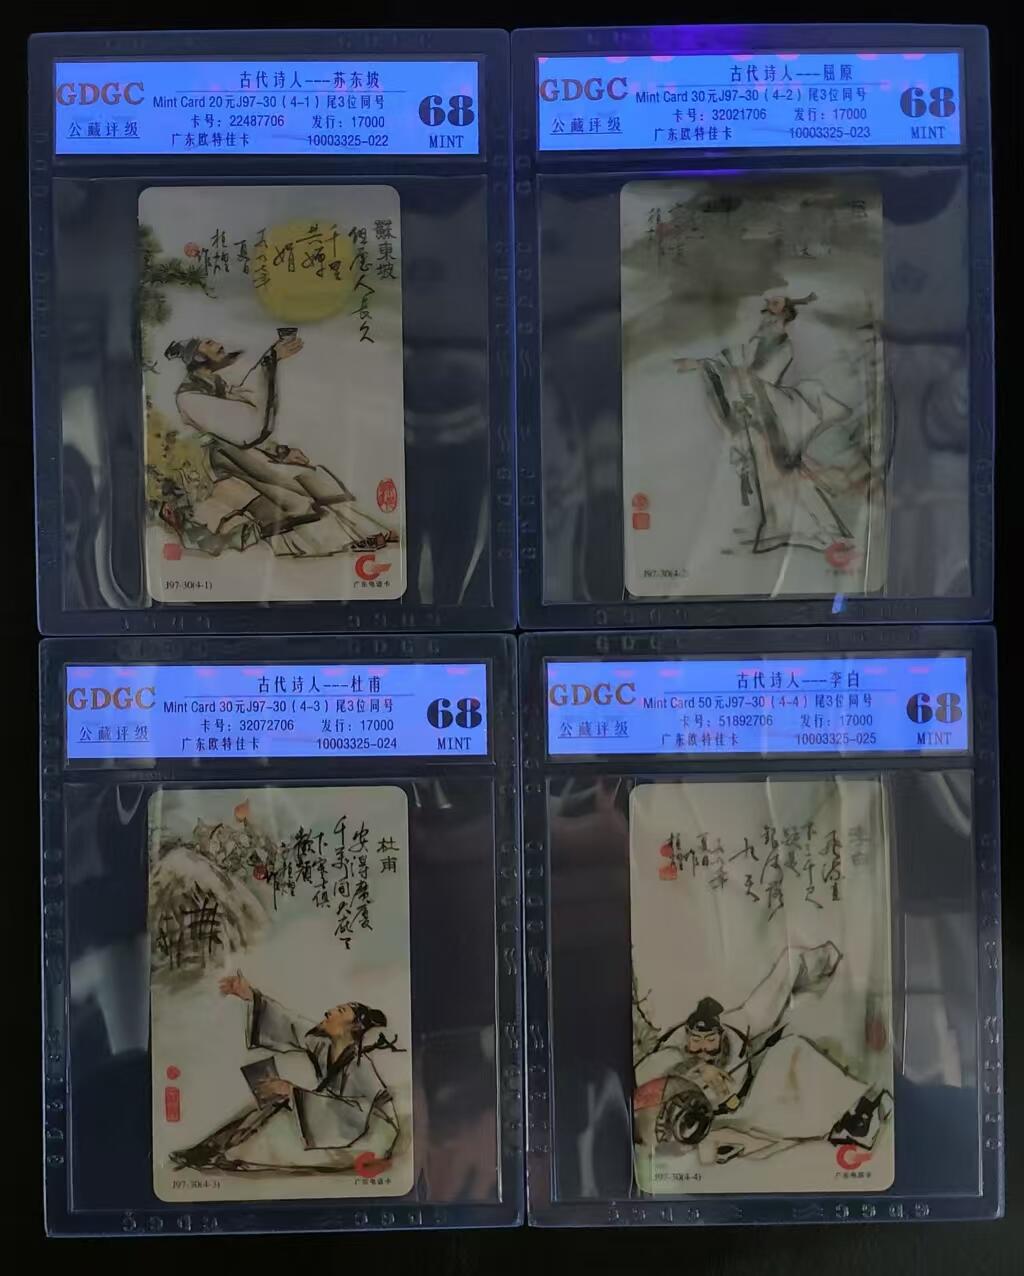 古代诗人---苏东坡
GDGC
Mint Card 20元J97-30（4-1）尾3位同号
68
公藏评级
卡号：22487706 发行：17000
广东欧特佳卡 10003325-022
MINT
蘇東坡
但愿人長久
千里
共嬋
娟
夏日
桂煌
作
J97-30(4-1)
广东电话卡
古代诗人---屈原
GDGC
Mint Card 30元J97-30（4-2）尾3位同号
68
公藏评级
卡号：32021706 发行：17000
广东欧特佳卡 10003325-023
MINT
J97-30(4-2)
广东电话卡
古代诗人---杜甫
GDGC
Mint Card 30元J97-30（4-3）尾3位同号
68
公藏评级
卡号：32072706 发行：17000
广东欧特佳卡 10003325-024
MINT
杜甫
安得廣廈
千萬間大庇天
下寒士俱
歡顏
桂煌
作
J97-30(4-3)
广东电话卡
古代诗人---李白
GDGC
Mint Card 50元J97-30（4-4）尾3位同号
68
公藏评级
卡号：51892706 发行：17000
广东欧特佳卡 10003325-025
MINT
李白
飛流直
下三千尺
疑是
銀河落
九天
夏日
桂煌
作
J97-30(4-4)
广东电话卡